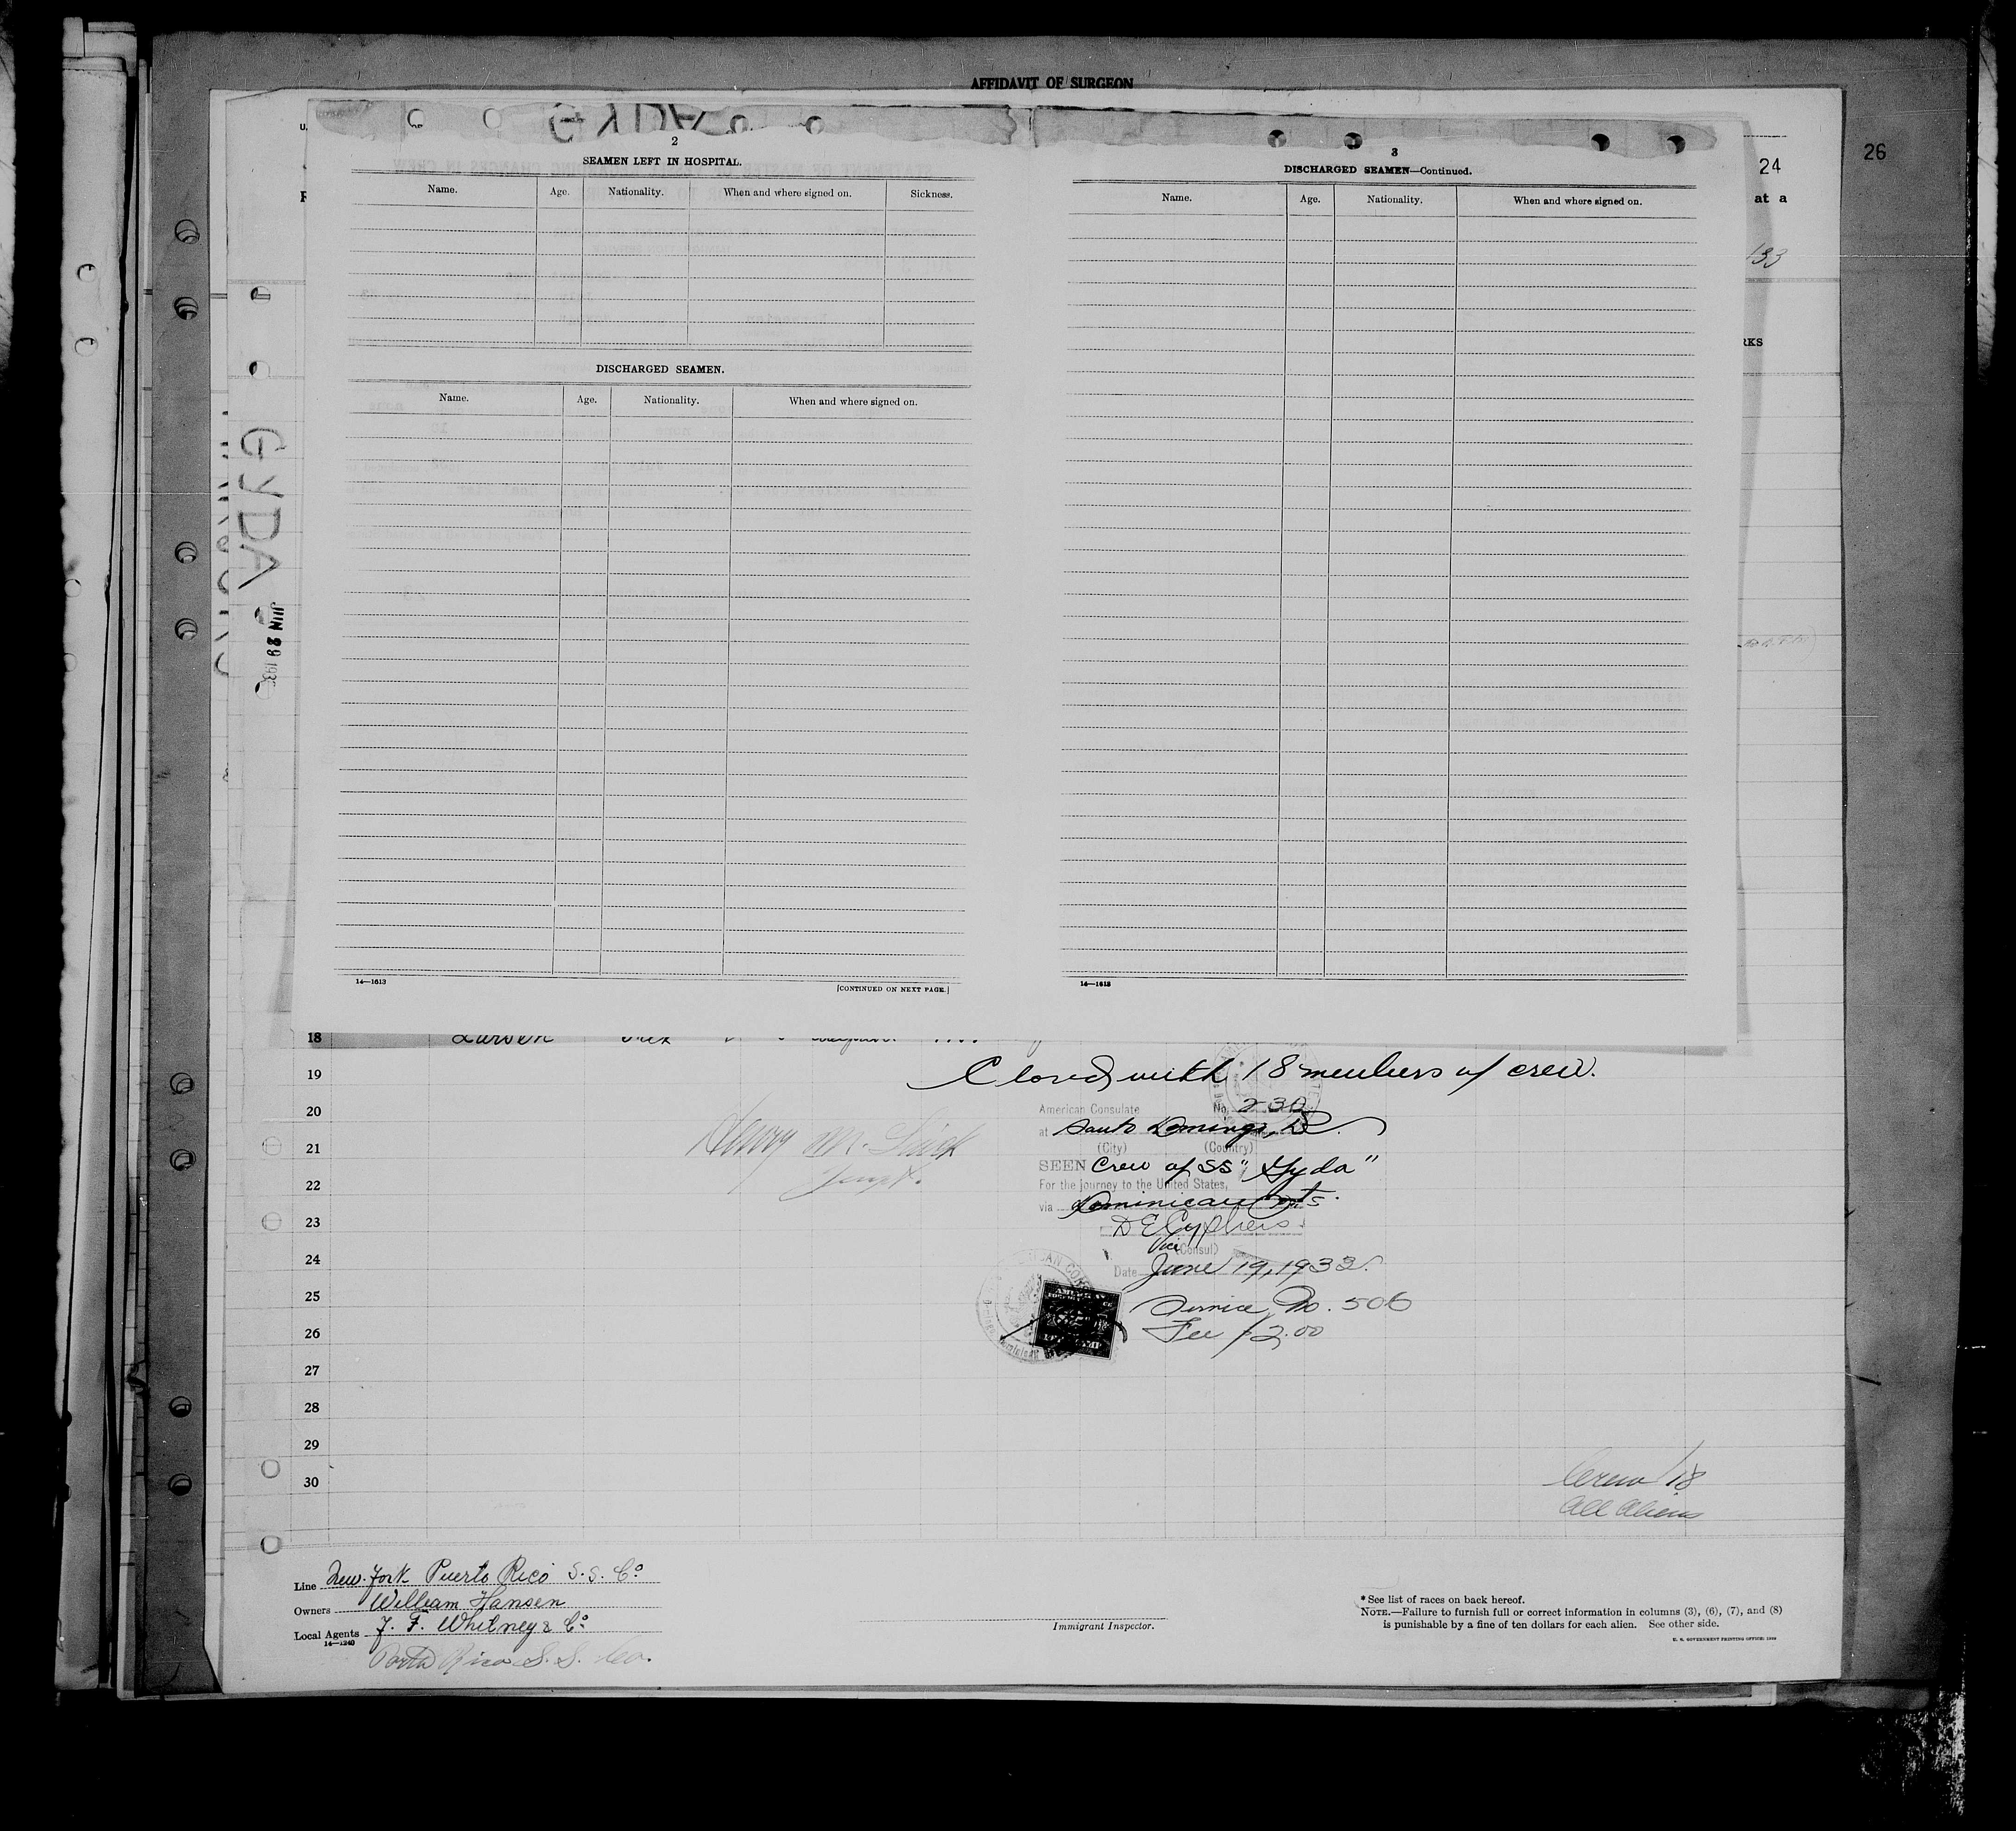 AFFIDAVIT OF SURGEON
26
24
at a
193
RKS
GYDA
JUN 29 193
GYDA
2
SEAMEN LEFT IN HOSPITAL.
Name. Age. Nationality. When and where signed on. Sickness.
DISCHARGED SEAMEN.
Name. Age. Nationality. When and where signed on.
14—1613
[CONTINUED ON NEXT PAGE.]
3
DISCHARGED SEAMEN—Continued.
Name. Age. Nationality. When and where signed on.
14—1613
18 Larsen
19 Closed with 18 members of crew.
20 American Consulate No. 230
at Santo Domingo, D.R.
21 (City) (Country)
Henry M.
SEEN Crew of SS "Gyda"
22 For the journey to the United States,
via Dominican Pts.
23 D E Cyphers
Vice (Consul)
24 Date June 19, 1933.
25 Service No. 506
26 Fee $2.00
27
28
29
30 Crew 18
All Aliens
Line New-York Puerto Rico S.S. Co
Owners William Hansen
Local Agents J. F. Whitney & Co
14—1240
Porto Rico S.S. Co.
Immigrant Inspector.
* See list of races on back hereof.
NOTE.—Failure to furnish full or correct information in columns (3), (6), (7), and (8)
is punishable by a fine of ten dollars for each alien. See other side.
U. S. GOVERNMENT PRINTING OFFICE: